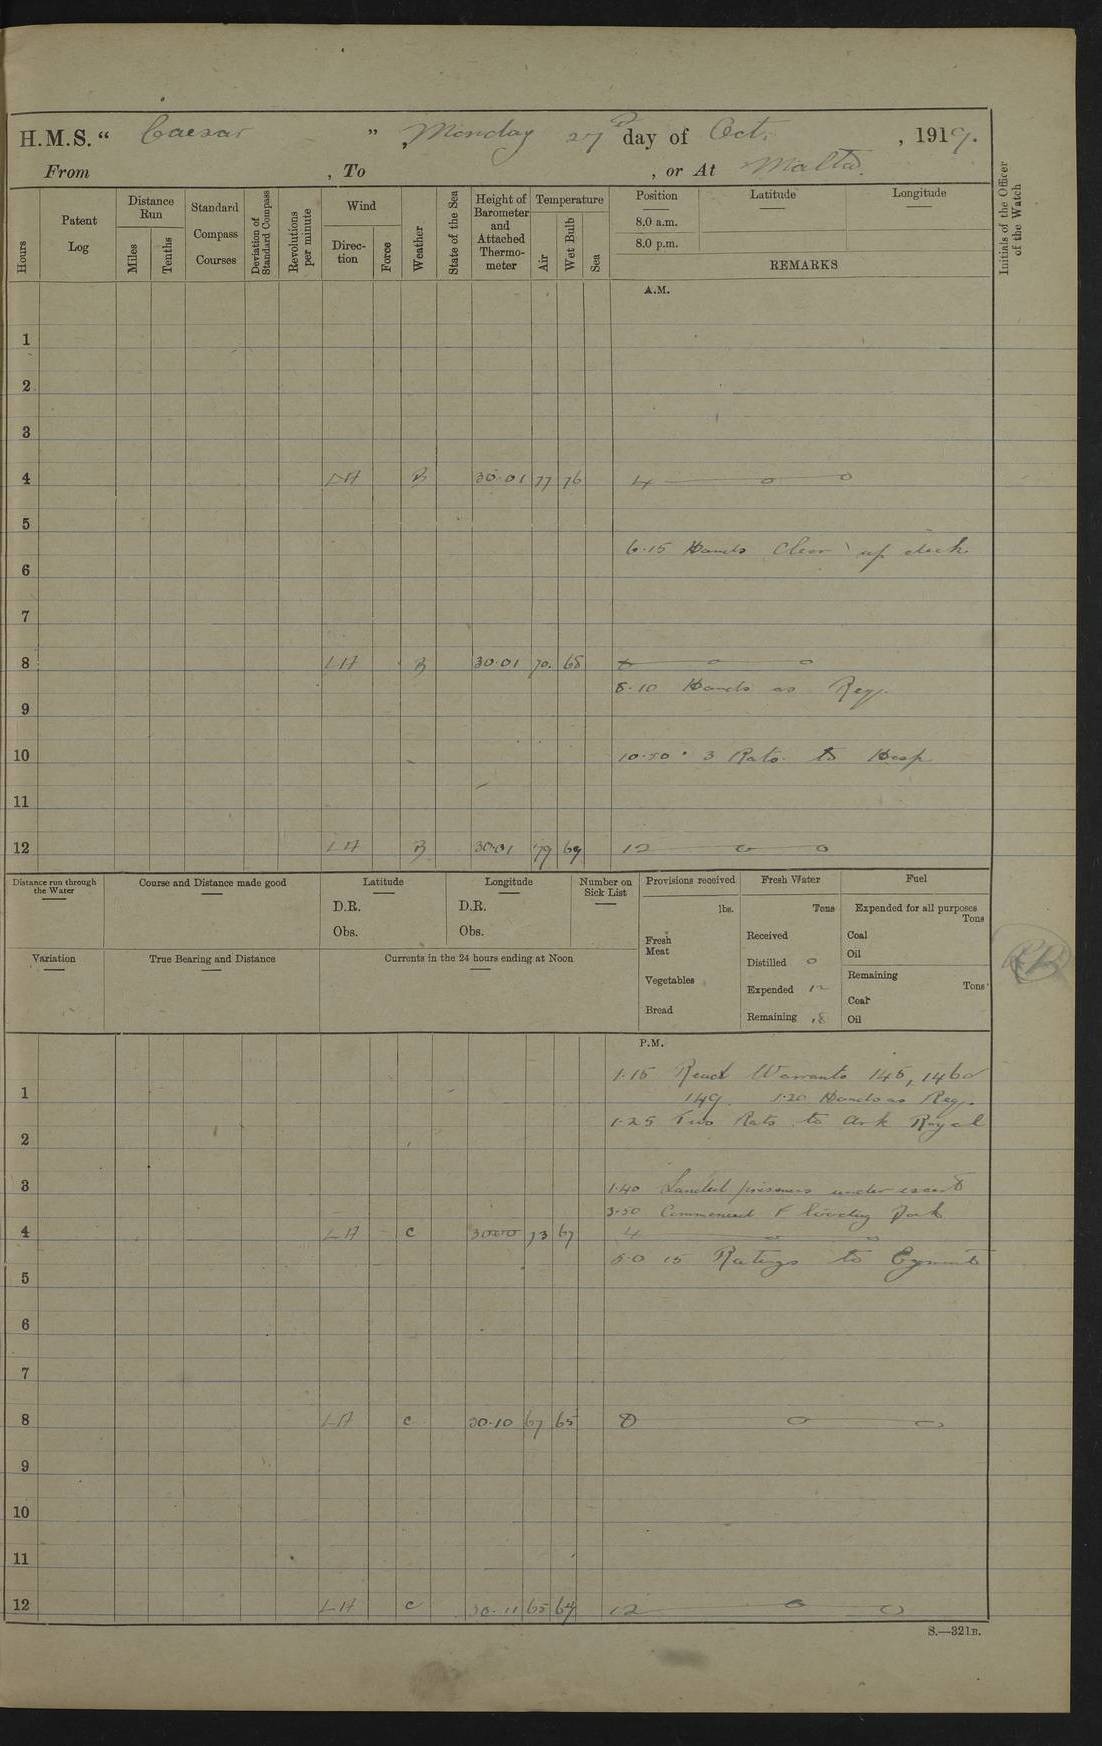 H.M.S. “ Caesar ” , Monday 27th day of Oct. , 1919.
From , To , or At Malta.
Hours
Patent Log
Distance Run
Miles
Tenths
Standard Compass Courses
Deviation of Standard Compass
Revolutions per minute
Wind
Direc-tion
Force
Weather
State of the Sea
Height of Barometer and Attached Thermo-meter
Temperature
Air
Wet Bulb
Sea
Position
8.0 a.m.
8.0 p.m.
Latitude
Longitude
REMARKS
Initials of the Officer of the Watch
A.M.
1
2
3
4 LH B 30.01 77 76 4 o o
5
6.15 Hands clear up deck.
6
7
8 LH B 30.01 70. 68 8 o o
8.10 Hands as Req.
9
10 10.50 3 Rats. to Hosp.
11
12 LH B 30.01 79 69 12 o o
Distance run through the Water
Course and Distance made good
Latitude
D.R.
Obs.
Longitude
D.R.
Obs.
Number on Sick List
Provisions received
lbs.
Fresh Meat
Vegetables
Bread
Fresh Water
Tons
Received
Distilled 0
Expended 12
Remaining
Fuel
Expended for all purposes
Tons
Coal
Oil
Remaining
Tons
Coal
Oil
Variation
True Bearing and Distance
Currents in the 24 hours ending at Noon
P.M.
1.15 Read Warrants 145, 146 &
1 149. 1.20 Hands as Req.
1.25 Two Rats to Ark Royal
2
3 1.40 Landed prisoners under escort
3.50 Commenced Flooding Dock
4 LH C 30.00 73 67 4 o o
5.0 15 Ratings to Egmont
5
6
7
8 LH C 30.10 67 65 8 o o
9
10
11
12 LH C 30.11 65 64 12 o o
S.—321B.